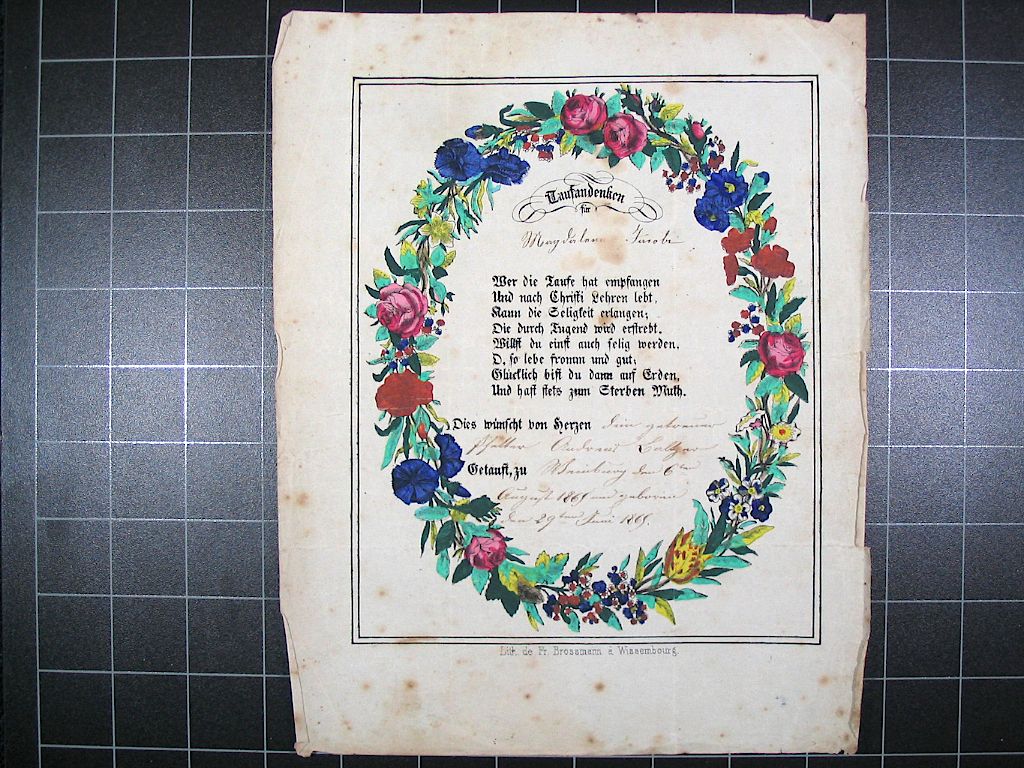 Taufandenken
für
Magdalena Jacobi
Wer die Taufe hat empfangen
Und nach Christi Lehren lebt,
Kann die Seligkeit erlangen;
Die durch Tugend wird erstrebt.
Willst du einst auch selig werden,
O, so lebe fromm und gut;
Glücklich bist du dann auf Erden,
Und hast stets zum Sterben Muth.
Dies wünscht von Herzen dein getreuer
Pfetter Andreas
Getauft, zu den 6ten
August und geboren
den 29ten Juni
Lith. de Fr. Brossmann à Wissembourg.